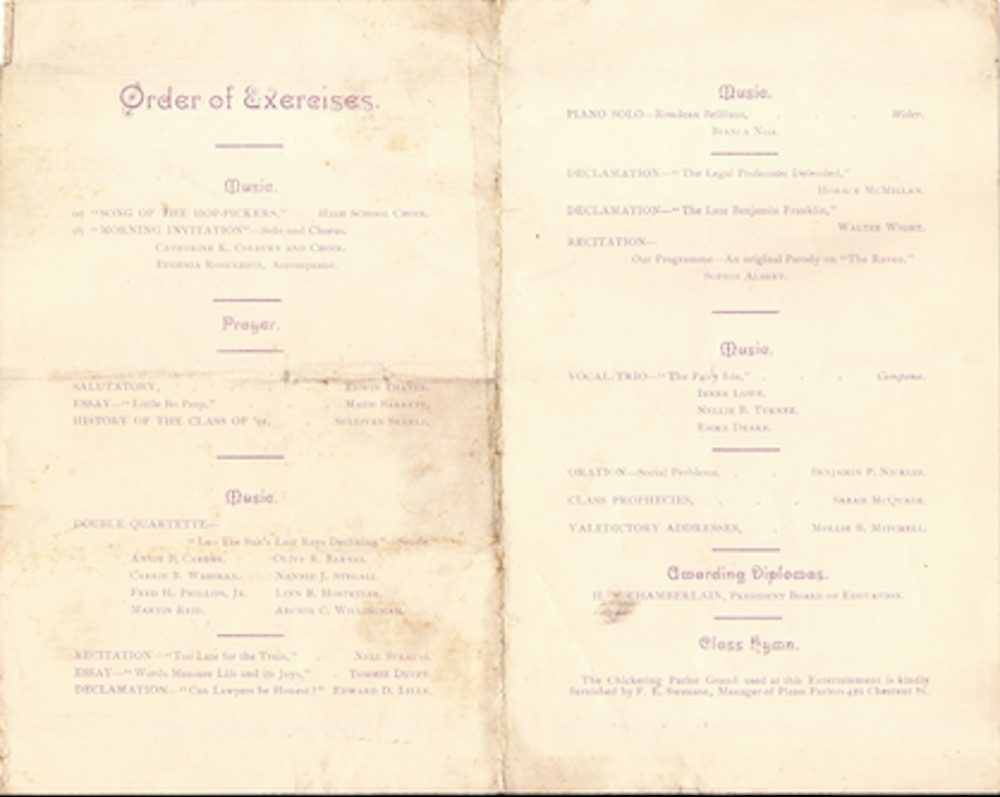 Order of Exercises.
Music.
(a) "SONG OF THE HOP-PICKERS," HIGH SCHOOL CHOIR.
(b) "MORNING INVITATION"—Solo and Chorus.
CATHERINE K. COLBURN AND CHOIR.
EUGENIA ROSENHEIN, Accompanist.
Prayer.
SALUTATORY, EDWIN THAYER.
ESSAY—"Little Bo Peep," MAUD BARRETT.
HISTORY OF THE CLASS OF SULLIVAN
Music.
DOUBLE QUARTETTE—
The Sun's Last Rays Declining."
ANNIE P. OLIVE R. BARNES.
CARRIE B. NANNIE J. STEGALL.
FRED H. PHILLIPS, JR. LINN B. HOSTETTER.
MARTIN REID. ARCHIE C. WILLINGHAM.
RECITATION—"Too Late for the Train," NELL STRAUSS.
ESSAY—"Words Measure Life and its Joys," TOMMIE DUFFY.
DECLAMATION—"Can Lawyers be Honest?" EDWARD D. LILLY.
Music.
PIANO SOLO—Rondeau Brilliant, Weber.
BIANCA NOA.
DECLAMATION—"The Legal Profession Defended,"
HORACE McMILLAN.
DECLAMATION—"The Late Benjamin Franklin,"
WALTER WIGHT.
RECITATION—
Our Programme—An original Parody on "The Raven."
SOPHIE ALBERT.
Music.
VOCAL TRIO—"The Fairy Isle," Campana.
IRENE LOWE.
NELLIE B. TURNER.
EMMA DRAKE.
ORATION—Social Problems, BENJAMIN P. NICKLIN.
CLASS PROPHECIES, SARAH McQUADE.
VALEDICTORY ADDRESSES, MOLLIE B. MITCHELL.
Awarding Diplomas.
H. CHAMBERLAIN, PRESIDENT BOARD OF EDUCATION.
Class Hymn.
The Chickering Parlor Grand used at this Entertainment is kindly
furnished by F. E. Manager of Piano Parlors Chestnut St.